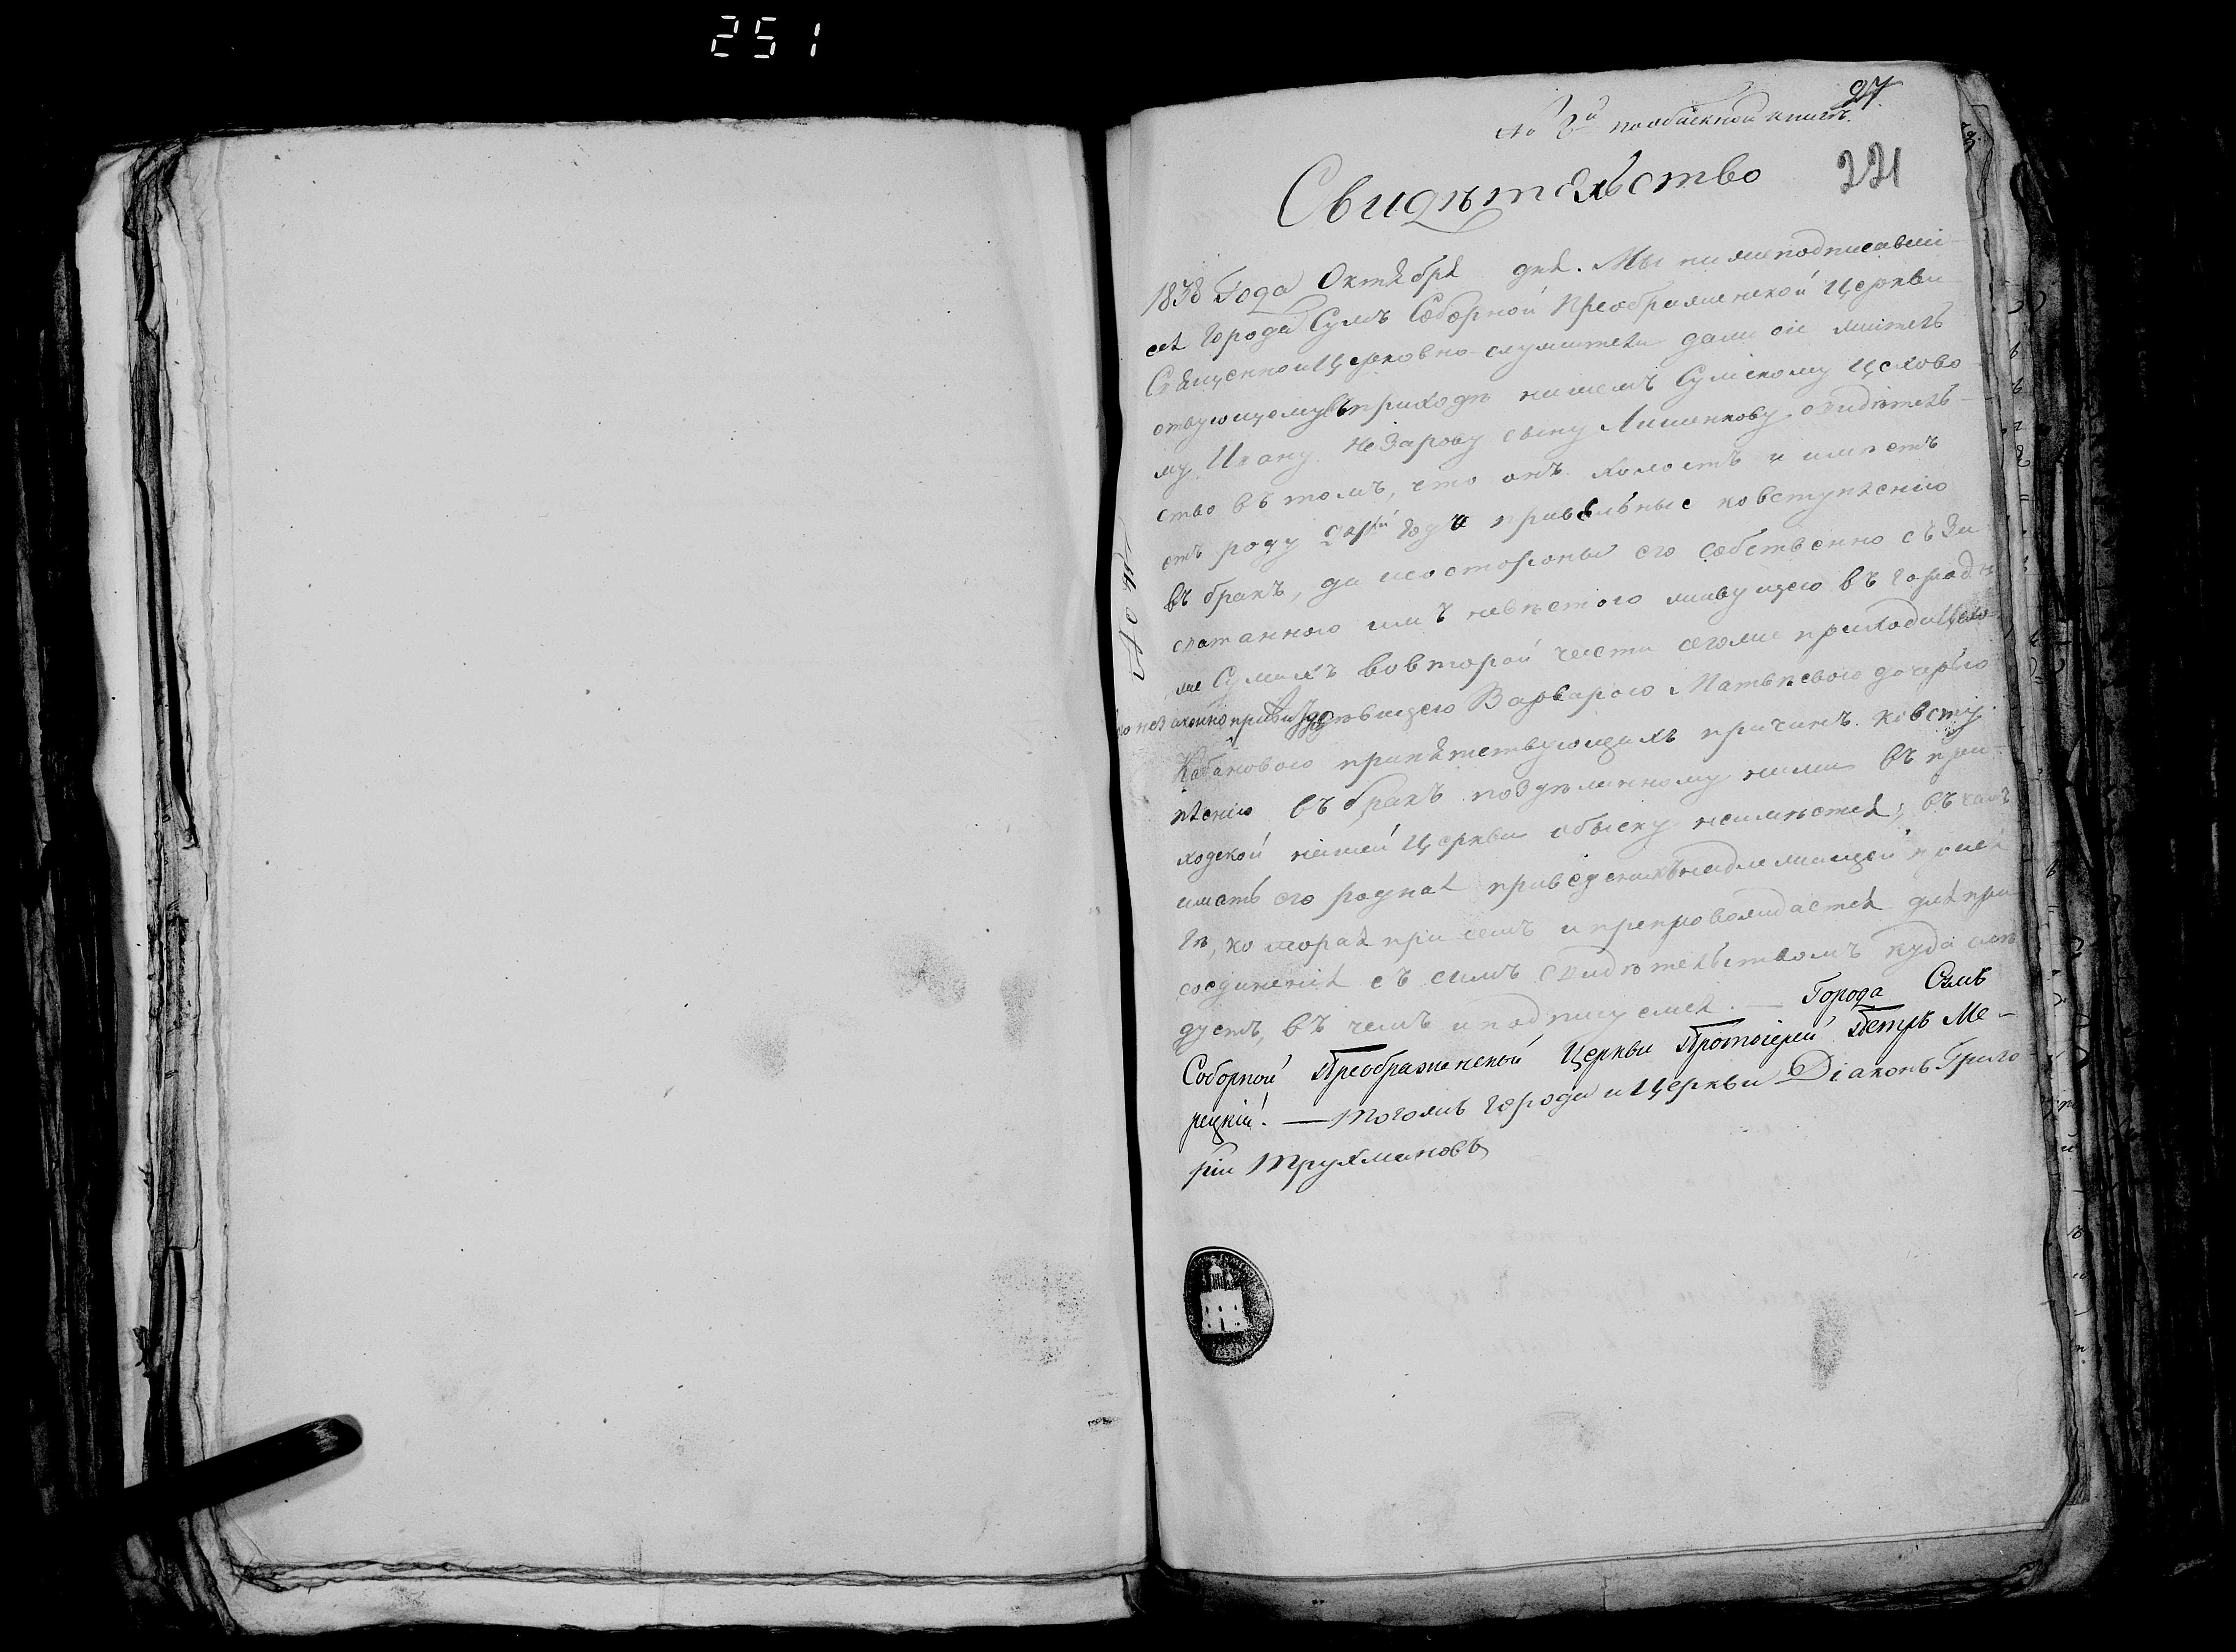 251
27
№ по обыскной книгѣ.
221
Свидѣтельство
1838 Года Октября дня. Мы нижеподписавші-
еся города Сумъ Соборной Преображенской Церкви
Священно и Церковно-служители дали сіе жител
ствующему въ приходѣ нашемъ Сумскому Цехово-
му Ивану Назарову сыну свидѣтель-
ство въ томъ, что онъ холостъ и имѣетъ
отъ роду года правильные ко вступленію
въ бракъ, да и со стороны его собственно съ За
сватанною имъ невѣстою живущею въ город
же Сумахъ во второй части сегоже прихода
Варварою Матвѣевою дочерью
препятствующихъ причинъ ко всту
пленію въ бракъ по здѣланному нами въ при-
ходской нашей Церкви обыску неимѣется; въ чемъ
и мать его родная приведена къ надлежащей прися
гѣ, которая при семъ и препровождается для при
соединенія съ симъ Свидѣтельствомъ куда слѣ
дуетъ, въ чемъ и подписуемся. — Города Сумъ
Соборной Преображенской Церкви Протоіерей Петръ Ме-
рецкій. — Тогожъ города и Церкви Діаконъ Григо
рій Трухмановъ